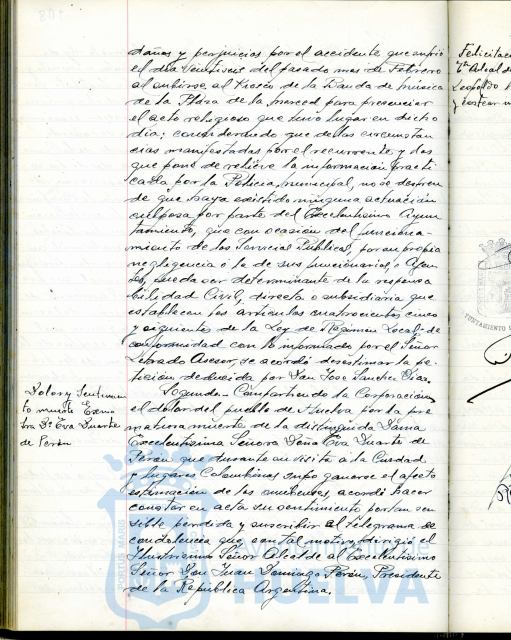 daños y perjuicios por el accidente que sufrió
el día veintiseis del pasado mes de Febrero
al subirse al Kiosco de la Banda de música
de la Plaza de la Merced para presenciar
el acto religioso que tuvo lugar en dicho
día; considerando que de las circunstan
cias manifestadas por el recurrente y las
que pone de relieve la información practi
cada por la Policia municipal, no se despren
de que haya existido ninguna actuación
culposa por parte del Excelentisimo Ayun
tamiento, que con ocasión del funciona
miento de los Servicios Públicos, por su propia
negligencia ó la de sus funcionarios o Agen
tes, pueda ser determinante de la responsa
bilidad Civil, directa o subsidiaria que
establecen los artículos cuatrocientos cinco
y siguiente de la Ley de Régimen Local: de
conformidad con lo informado por el Señor
Letrado Asesor, se acordó desestimar la pe-
tición deducida por Don José Sanchez Diaz.
Dolor y Sentimien
to muerte Exma
Sra Dª Eva Duarte
de Perón
Segundo: Compartiendo la Corporación
el dolor del pueblo de Huelva por la pre
matura muerte de la distinguida Dama
Excelentisima Señora Doña Eva Duarte de
Perón que durante su visita a la Ciudad
y lugares Colombinos supo ganarse el afecto
estimación de los onubenses, acordó hacer
constar en acta su sentimiento por tan sen
sible pérdida y suscribir al telegrama de
condolencia que con tal motivo dirigió el
Ilustrisimo Señor Alcalde al Excelentisimo
Señor Don Juan Domingo Perón, Presidente
de la República Argentina.
Felicitaci
Leopoldo
PORTUS MARIS
HUELVA